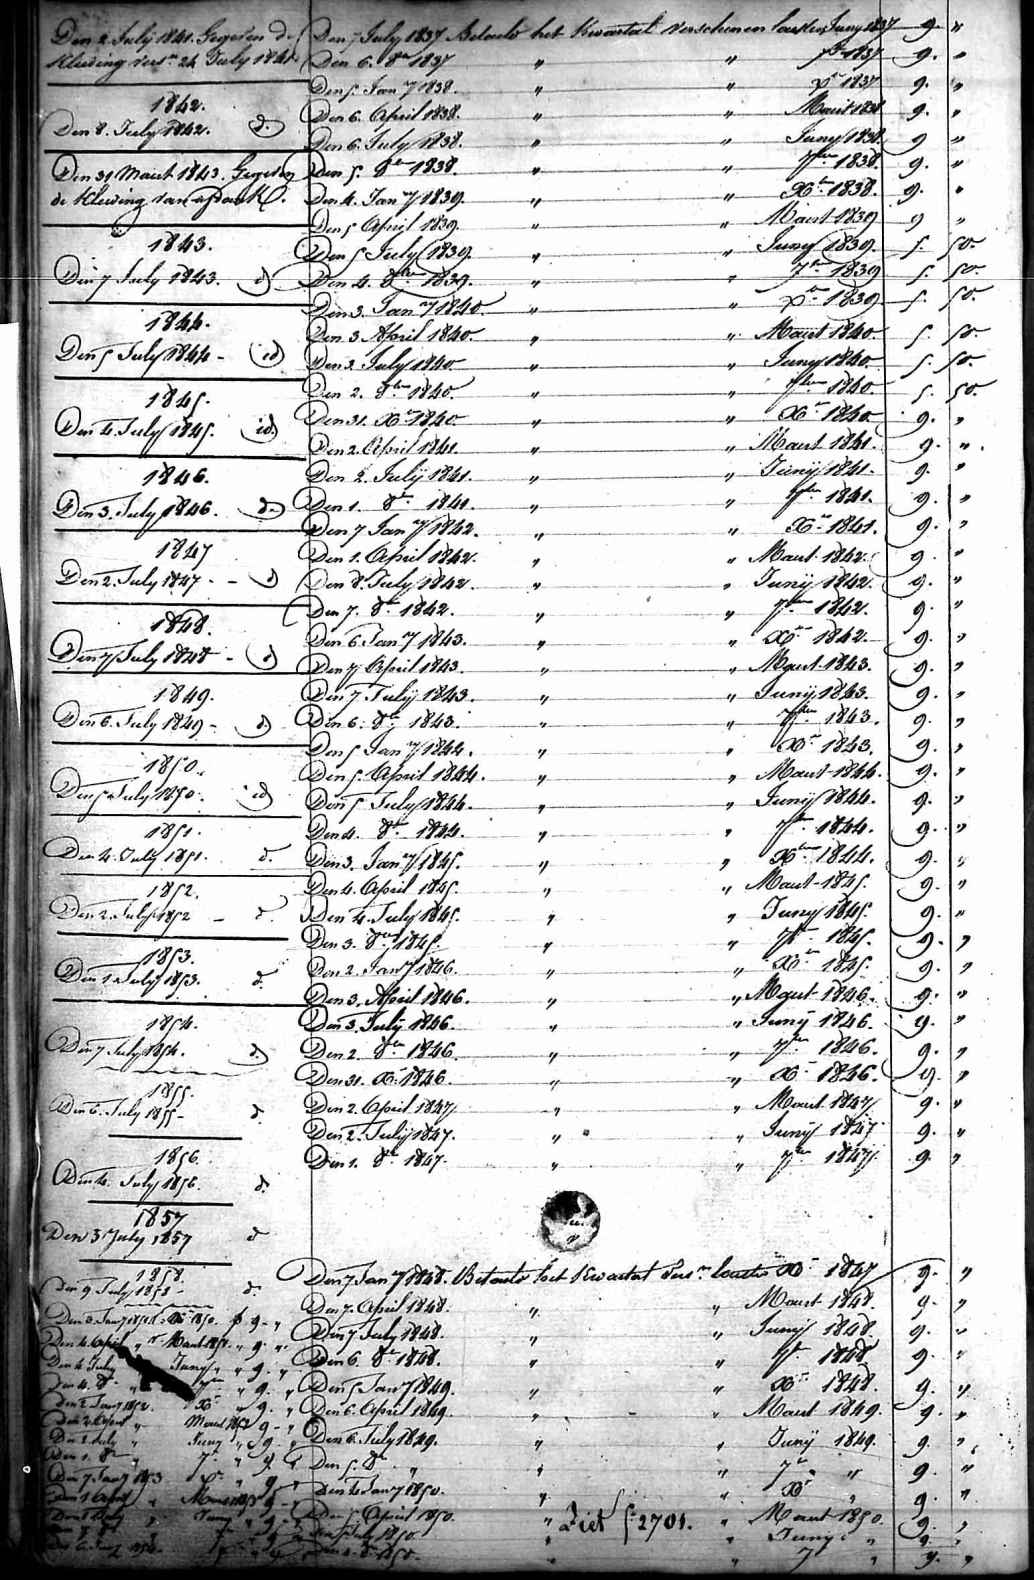 Den 2 July 1841. Gegeven de
Kleeding vers.n 24 July 1841
1842.
Den 8. July 1842. d.
Den 31 Maart 1843. Gegeven
de Kleeding van
1843.
Den 7 July 1843. d
1844.
Den 5 July 1844 - id
1845.
Den 4. July 1845. id.
1846.
Den 3. July 1846. d.
1847
Den 2. July 1847. - d
1848.
Den 7 July 1848 - d
1849.
Den 6. July 1849 - d
1850.
Den 5 July 1850. id
1851.
Den 4. July 1851. d.
1852.
Den 2. July 1852 - d.
1853.
Den 1 July 1853. d.
1854.
Den 7 July 1854. d.
1855.
Den 6. July 1855 - d.
1856.
Den 4. July 1856. d.
1857
Den 3 July 1857 d
1858.
Den 9 July 1858 - d.
Den 3. Jany 1851 Xb 1850. f 9 - "
Den 4. April " Maart 1851. " 9 - "
Den 4 July Juny " " 9. "
Den 4. 8b " 9. "
Den 2 Jany 1852. Xb " 9. "
Den 2. April " Maart 1852 9 - "
Den 2. July " Juny " 9 - "
Den 1. 8b " 7b " 9 "
Den 7 Jany 1853 Xb " 9 "
Den 1 April " Maart 1853 9 - "
Den 1 July " Juny " 9 - "
Den 7 July 1837 Betaald het Kwartaal verschenen laasten Juny 1837 9. "
Den 6. 8b 1837 " " 7b 1837 9. "
Den 5. Jany 1838. " " Xb 1837 9. "
Den 6. April 1838. " " Maart 1838 9. "
Den 6. July 1838. " " Juny 1838. 9 "
Den 5. 8b 1838. " " 7ber 1838 9. "
Den 4. Jany 1839. " " Xb 1838. 9. "
Den 5 April 1839. " " Maart 1839 9 "
Den 5 July 1839. " " Juny 1839. 5. 50.
Den 4. 8ber 1839. " " 7b 1839 5. 50.
Den 3. Jany 1840. " " Xb 1839. 5. 50.
Den 3 April 1840. " " Maart 1840. 5. 50.
Den 3. July 1840. " " Juny 1840. 5. 50.
Den 2. 8ber 1840. " " 7ber 1840. 5. 50.
Den 31. Xb 1840 " " Xb 1840 9. "
Den 2. April 1841. " " Maart 1841. 9. "
Den 2. July 1841. " " Juny 1841. 9. "
Den 1. 8b 1841. " " 7ber 1841. 9. "
Den 7 Jany 1842. " " Xb 1841. 9. "
Den 1. April 1842. " " Maart 1842. 9. "
Den 8. July 1842. " " Juny 1842. 9. "
Den 7. 8b 1842. " " 7ber 1842. 9. "
Den 6 Jany 1843. " " Xb 1842. 9. "
Den 7 April 1843. " " Maart 1843. 9. "
Den 7. July 1843. " " Juny 1843. 9. "
Den 6. 8b 1843. " " 7ber 1843. 9. "
Den 5 Jany 1844. " " Xb 1843. 9. "
Den 5. April 1844. " " Maart 1844. 9. "
Den 5 July 1844. " " Juny 1844. 9. "
Den 4. 8b 1844. " " 7b 1844. 9. "
Den 3. Jany 1845. " " Xber 1844. 9. "
Den 4. April 1845. " " Maart 1845. 9. "
Den 4. July 1845. " " Juny 1845. 9. "
Den 3. 8ber 1845. " " 7b 1845. 9. "
Den 2. Jany 1846. " " Xb 1845. 9. "
Den 3. April 1846. " " Maart 1846. 9. "
Den 3. July 1846. " " Juny 1846. 9. "
Den 2. 8ber 1846. " " 7b 1846. 9. "
Den 31. Xb 1846. " " Xb 1846. 9. "
Den 2. April 1847. " " Maart 1847 9. "
Den 2. July 1847. " " Juny 1847 9. "
Den 1. 8b 1847. " " 7ber 1847. 9. "
Den 7 Jany 1848. Betaald het Kwartaal vers.n laasten Xb 1847 9. "
Den 7. April 1848. " " Maart 1848. 9. "
Den 7 July 1848. " " Juny 1848. 9. "
Den 6. 8b 1848. " " 7b 1848 9. "
Den 5 Jany 1849. " " Xb 1848. 9. "
Den 6. April 1849. " " Maart 1849. 9. "
Den 6. July 1849. " " Juny 1849. 9. "
Den 5. 8b " " " 7b " 9. "
Den 4 Jany 1850. " " Xb " 9. "
Den 5 April 1850. " Ziet f. 2701. " Maart 1850. 9. "
Den 5 July 1850. " " Juny " 9. "
Den 4. 8b 1850. " " 7 " 9. "